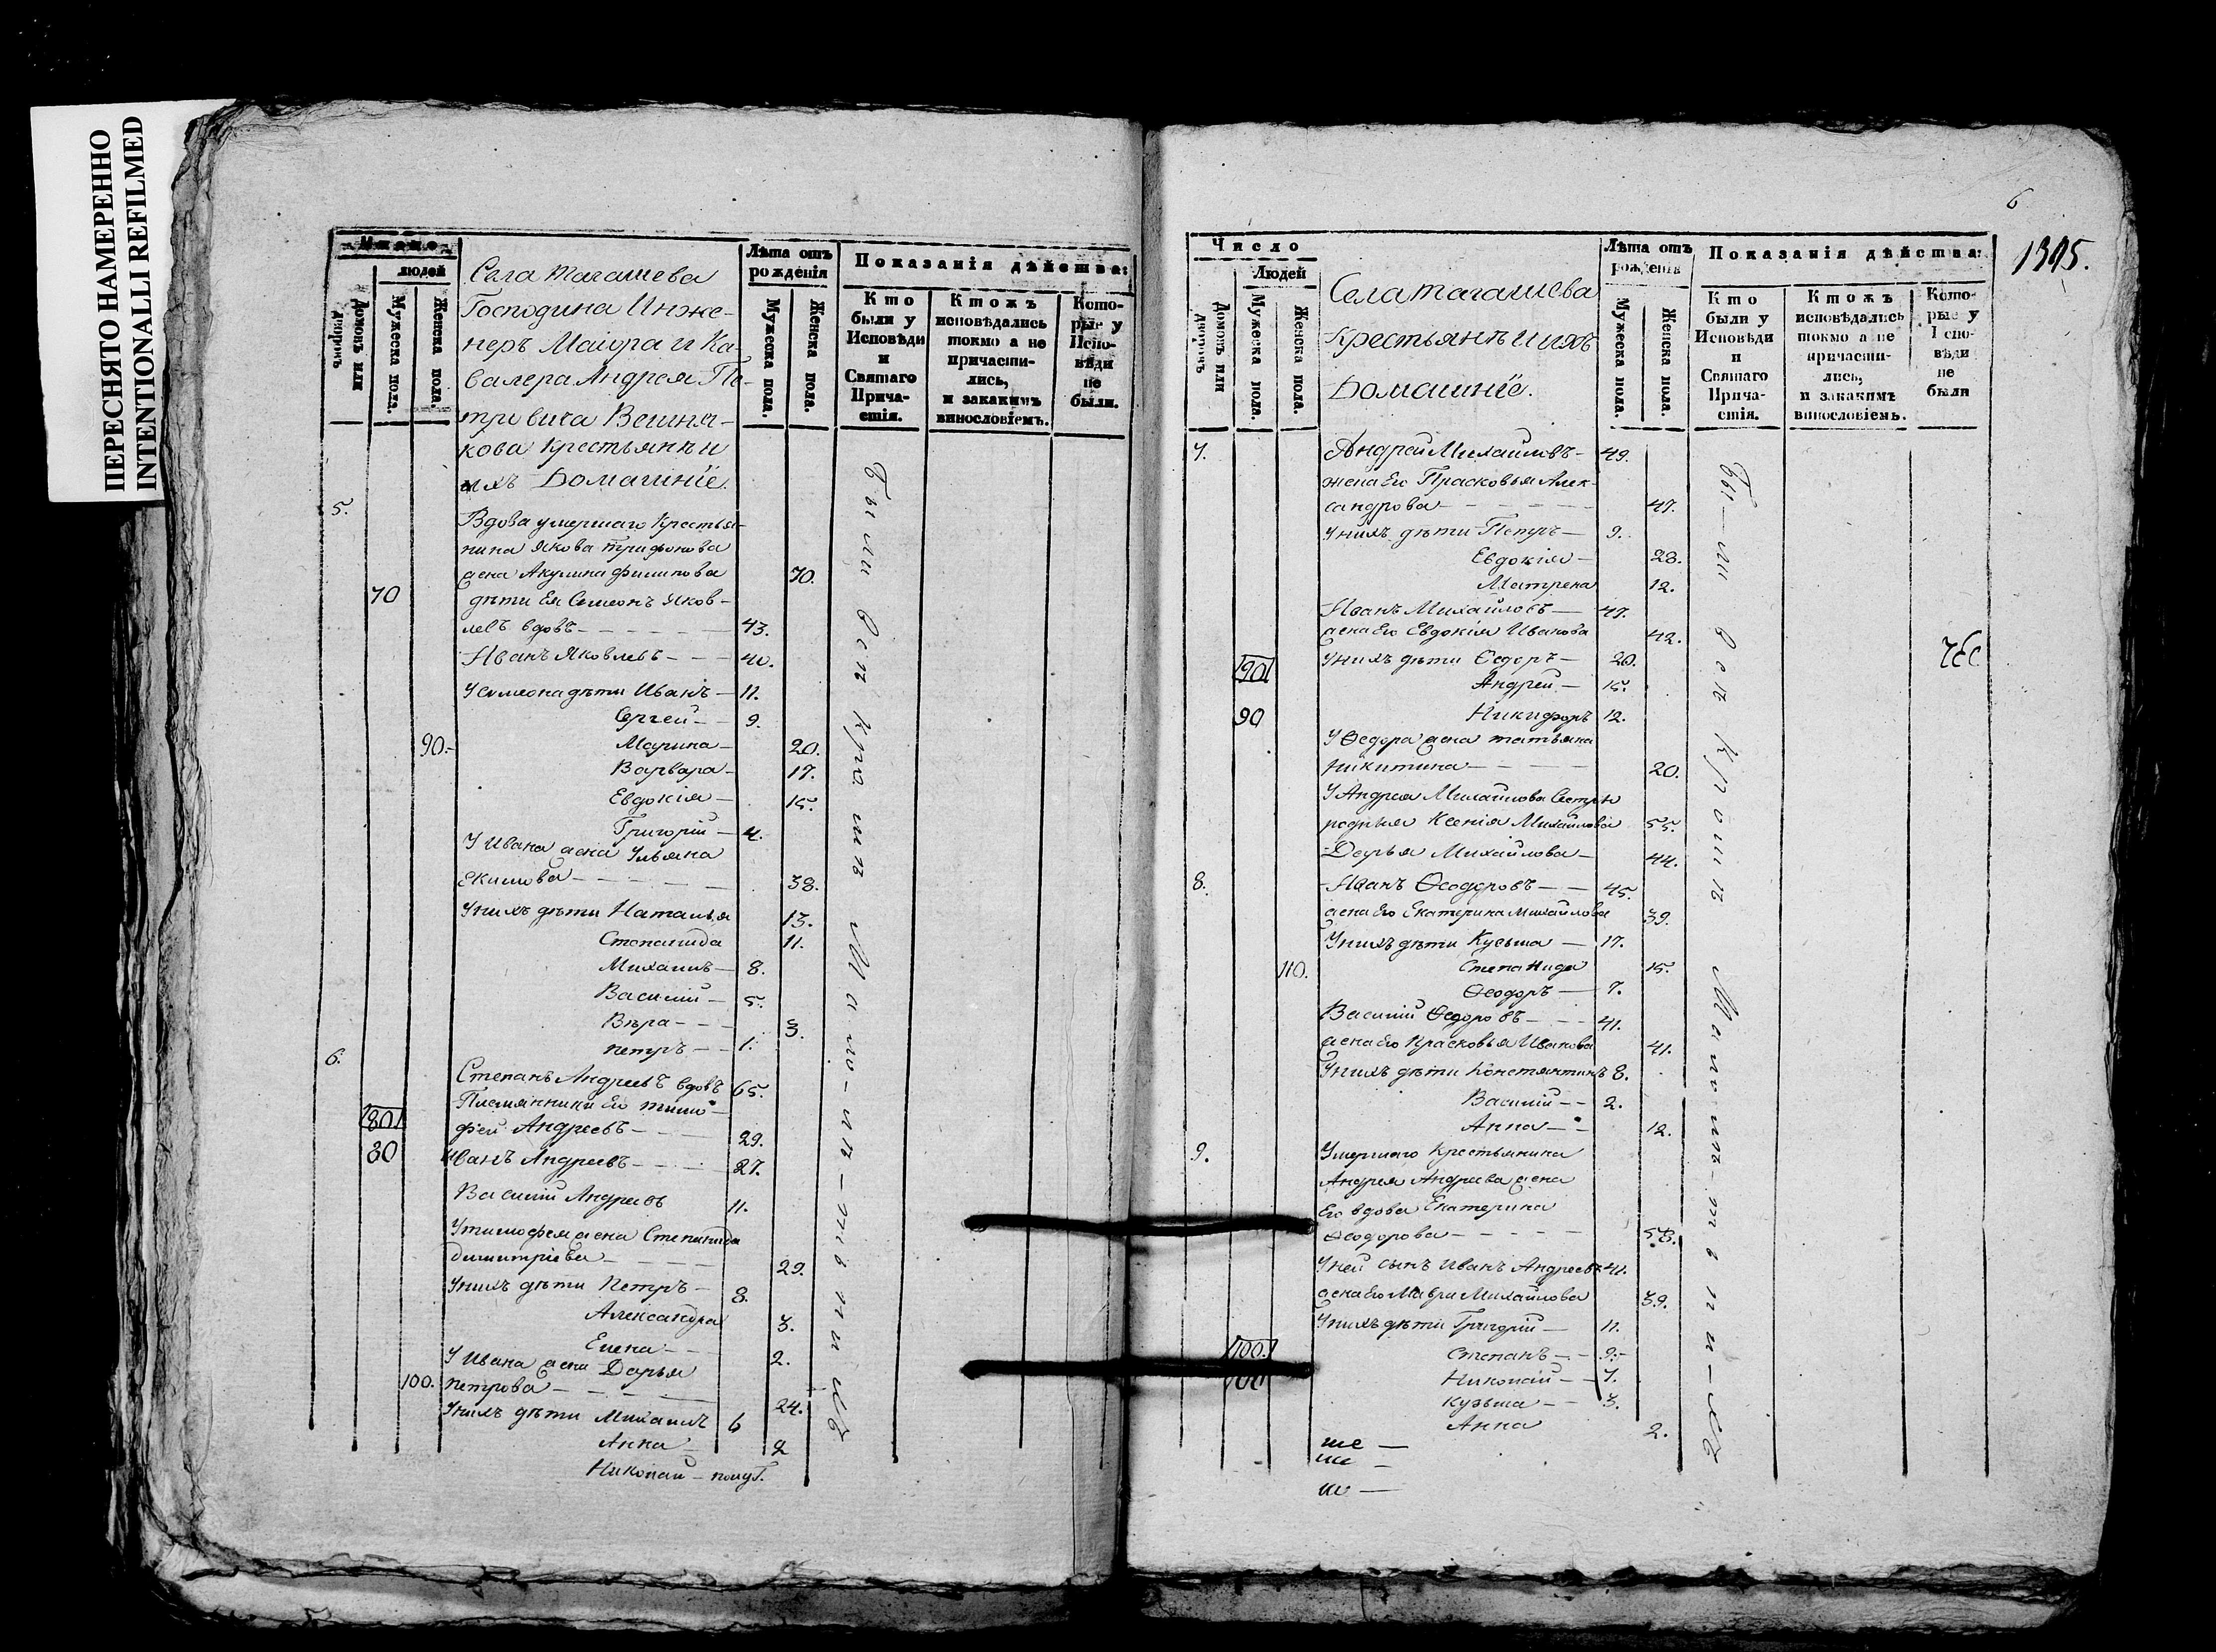 ПЕРЕСНЯТО НАМЕРЕННО
INTENTIONALLI REFILMED
Число
людей
Домовъ или дворовъ
Мужеска пола.
Женска пола.
Села Тагашева
Господина Инже-
неръ Маіора и Ка-
валера Андрея Пе-
тровича Вешня-
кова Крестьянѣ и
ихъ Домашніе.
Лѣта отъ рожденія
Мужеска пола.
Женска пола.
Показанія дѣйства:
Кто были у Исповѣди и Святаго Прича-стія.
Ктожъ исповѣдались токмо а не причасти-лись, и закакимъ винословіемъ.
Кото-рые у Испо-вѣди не были.
5.
Вдова умершаго Крестья-
нина Якова Трифонова
жена Акулина Филипова 70.
70 дѣти Ея Симеонъ Яков-
левъ вдовъ - 43.
Иванъ Яковлевъ - 40.
У Симеона дѣти Иванъ - 11.
Сергей - 9.
90. Марина - 20.
Варвара - 17.
Евдокія - 15.
Григорій - 4.
У Ивана жена Ульяна
Екимова - 38.
У нихъ дѣти Наталья 13.
Степанида 11.
Михаилъ - 8.
Василій - 5.
Вѣра - 3.
Петръ - 1.
6.
Степанъ Андреевъ вдовъ 65.
Племянники Его Тимо-
80 фей Андреевъ - 29.
80 Иванъ Андреевъ - 27.
Василій Андреевъ 11.
У Тимофея жена Степанида
Димитріева - 29.
У нихъ дѣти Петръ - 8.
Александра 3.
Елена - 2.
У Ивана жена Дарья
100. Петрова - 24.
У нихъ дѣти Михаилъ 6
Анна - 2
Николай - полуг.
6
1395.
Число
Людей
Домовъ или дворовъ
Мужеска пола.
Женска пола.
Села Тагашева
Крестьянѣ и ихъ
Домашніе.
Лѣта отъ рожденія
Мужеска пола.
Женска пола.
Показанія дѣйства:
Кто были у Исповѣди и Святаго Прича-стія.
Ктожъ исповѣдались токмо а не причасти-лись, и закакимъ винословіемъ.
Кото-рые у Испо-вѣди не были
7. Андрей Михайловъ - 49.
жена Его Прасковья Алек-
сандрова - 47.
У нихъ дѣти Петръ - 9.
Евдокія - 28.
Матрена 12.
Иванъ Михайловъ - 47.
жена Его Евдокія Иванова 42.
90 У нихъ дѣти Ѳедоръ - 20.
Андрей - 15.
90 Никифоръ 12.
У Ѳедора жена Татьяна
Никитина - 20.
У Андрея Михайлова Сестры
родныя Ксенія Михайлова 55.
Дарья Михайлова - 44.
8. Иванъ Ѳеодоровъ - 45.
жена Его Екатерина Михайлова 39.
У нихъ дѣти Кузьма - 17.
110. Степанида 15.
Ѳеодоръ - 7.
Василій Ѳедоровъ - 41.
жена Его Прасковья Иванова 41.
У нихъ дѣти Константинъ 8.
Василій - 2.
Анна - 12.
9. Умершаго Крестьянина
Андрея Андреева жена
Его вдова Екатерина
Ѳеодорова - 58.
У ней сынъ Иванъ Андреевъ 41.
жена Его Мавра Михайлова 39.
У нихъ дѣти Григорій - 11.
100. Степанъ - 9.
100 Николай - 7.
Кузьма - 3.
Анна 2.